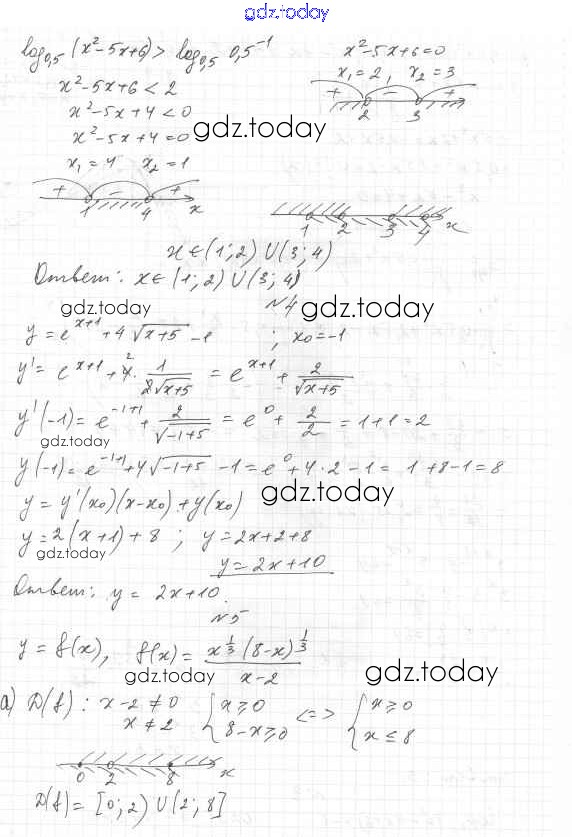 gdz.today
log₀,₅(x²-5x+6) > log₀,₅ 0,5⁻¹
x²-5x+6=0
x²-5x+6 < 2
x₁=2, x₂=3
x²-5x+4 < 0
+ - +
2 3
x²-5x+4=0
gdz.today
x₁=4 x₂=1
+ - +
1 4 x
1 2 3 4 x
x∈(1;2)∪(3;4)
Ответ: x∈(1;2)∪(3;4)
gdz.today
№4
gdz.today
y = e^(x+1) + 4√(x+5) - 1 ; x₀=-1
y' = e^(x+1) + 4² · 1/(2√(x+5)) = e^(x+1) + 2/√(x+5)
y'(-1) = e^(-1+1) + 2/√(-1+5) = e⁰ + 2/2 = 1+1 = 2
gdz.today
y(-1) = e^(-1+1) + 4√(-1+5) - 1 = e⁰ + 4·2 - 1 = 1+8-1 = 8
gdz.today
y = y'(x₀)(x-x₀) + y(x₀)
y = 2(x+1) + 8 ; y = 2x+2+8
gdz.today
y = 2x+10
Ответ: y = 2x+10.
№5
y = f(x), f(x) = x^(1/3) (8-x)^(1/3) / (x-2)
gdz.today
gdz.today
а) D(f) : x-2 ≠ 0 { x ≥ 0 <=> { x ≥ 0
x ≠ 2 8-x ≥ 0 x ≤ 8
0 2 8 x
D(f) = [0;2)∪(2;8]